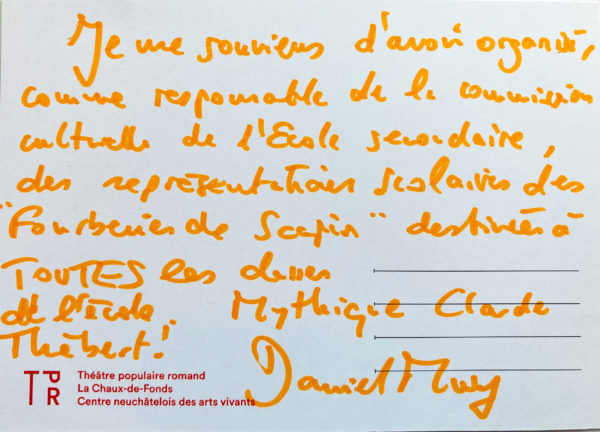 Je me souviens d'avoir organisé,
comme responsable de la commission
culturelle de l'Ecole secondaire,
des représentations scolaires des
"Fourberies de Scapin" destinées à
TOUTES les classes
de l'école. Mythique Claude
Thébert!
Daniel
TPR
Théâtre populaire romand
La Chaux-de-Fonds
Centre neuchâtelois des arts vivants